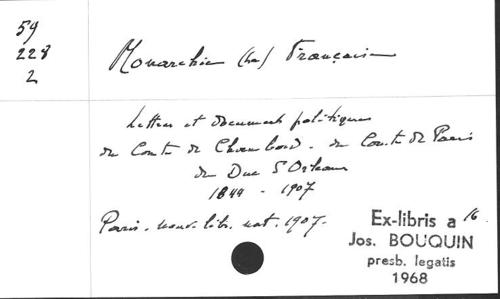 59
228
2
Monarchie (La) Française
Lettres et documents politiques
du Comte de Chambord - du Comte de Paris
du Duc d'Orléans
1844 - 1907
Paris. nouv. lib. nat. 1907.
Ex-libris a 16
Jos. BOUQUIN
presb. legatis
1968